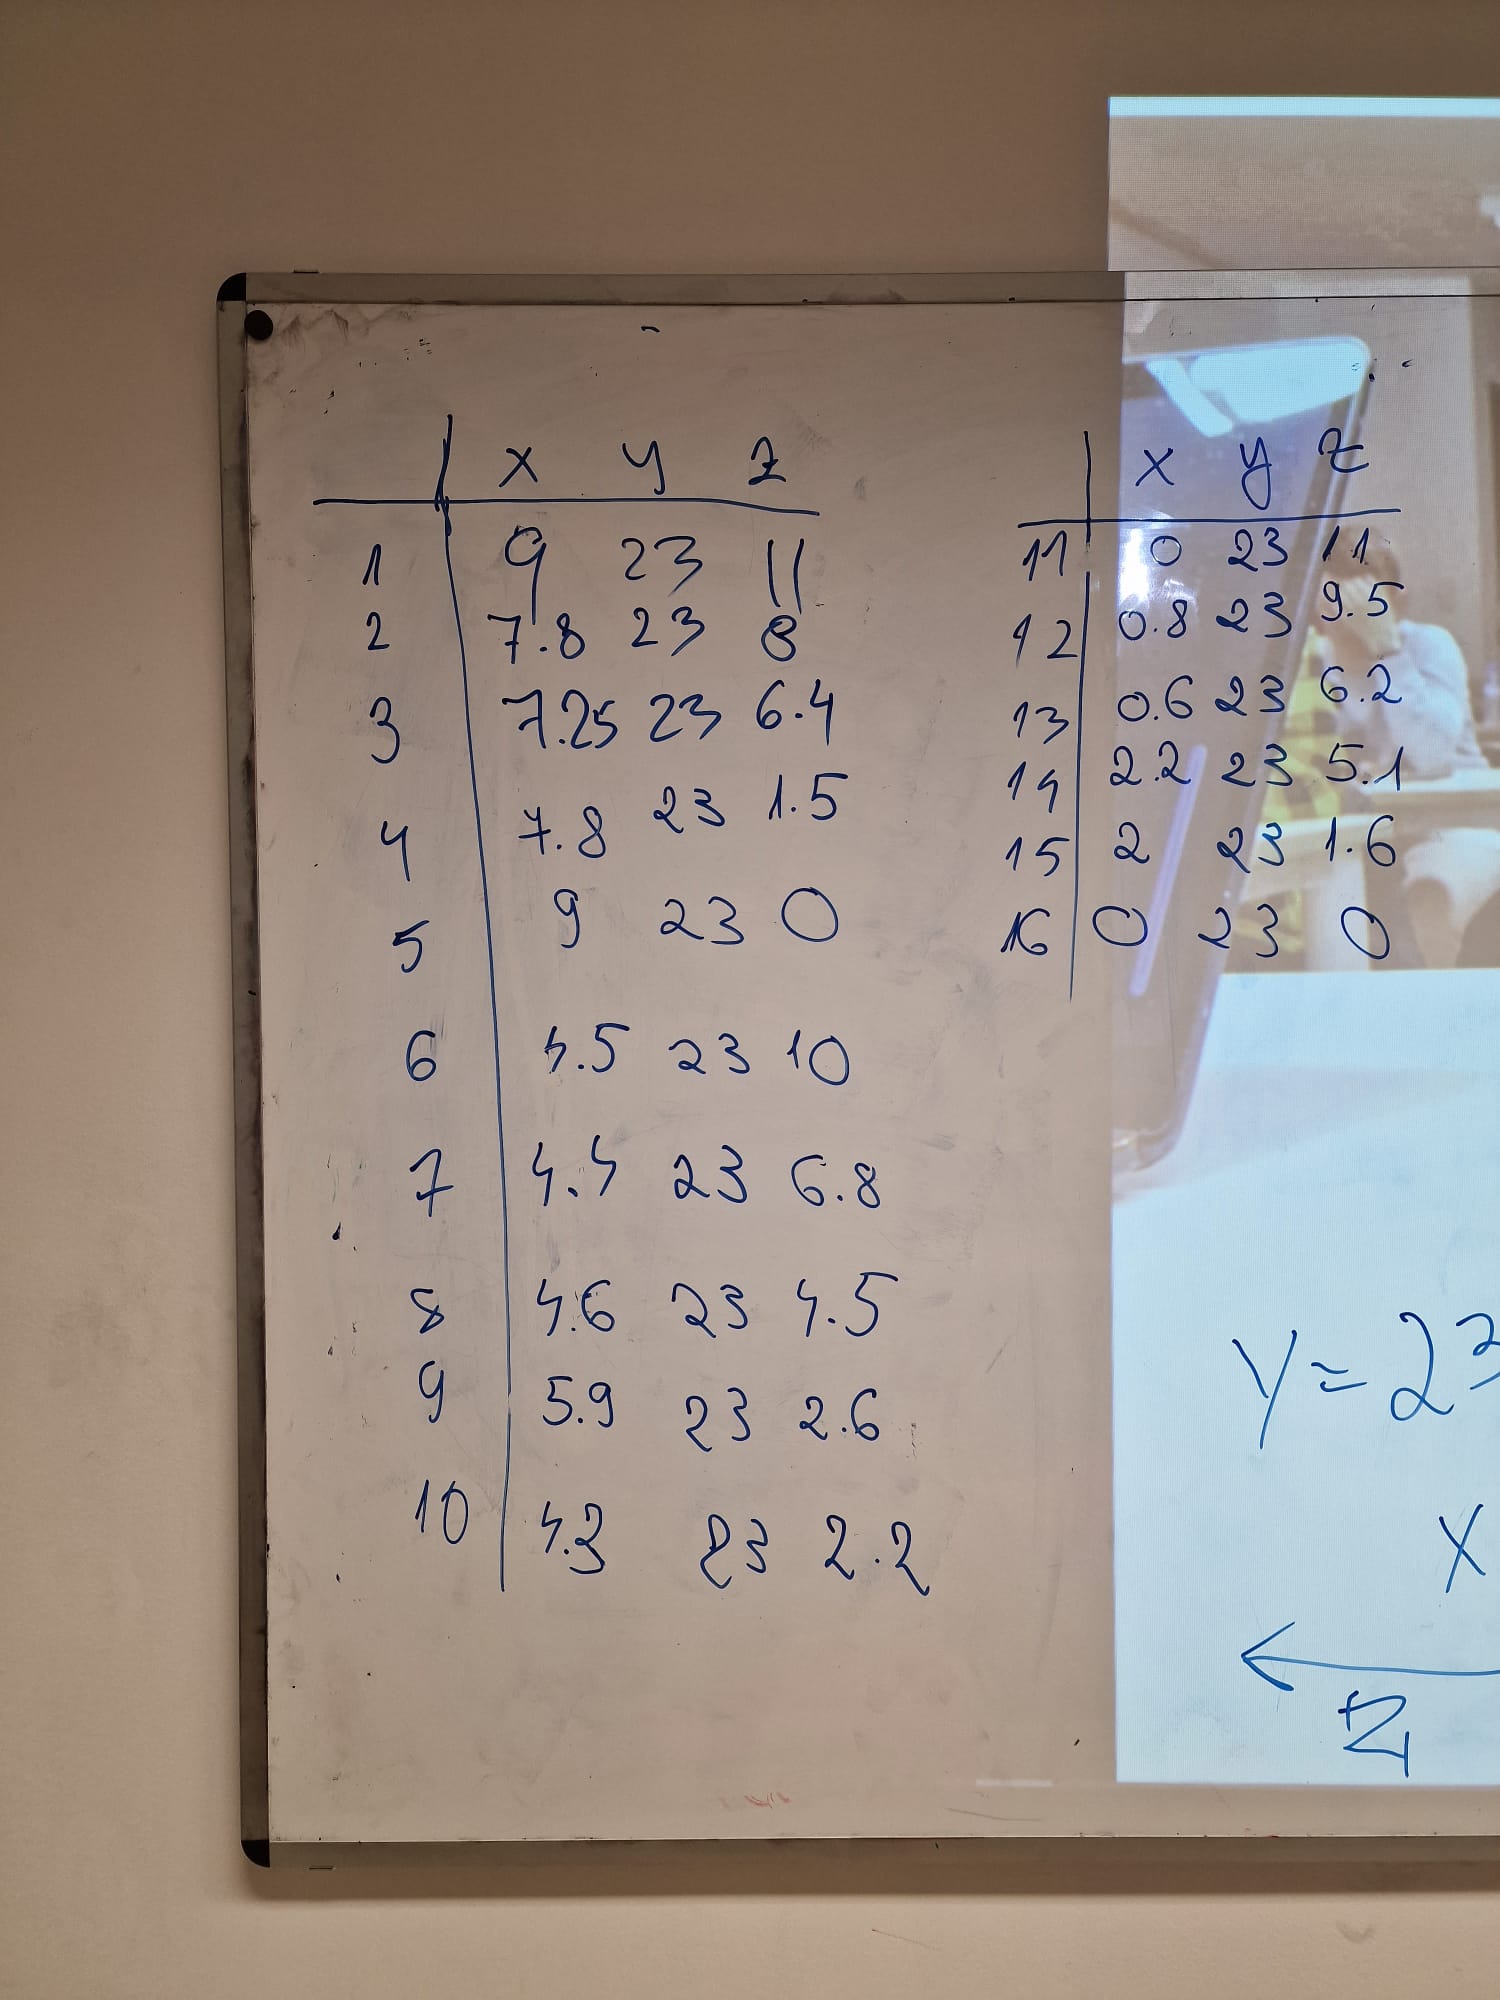 x y z
1 9 23 11
2 7.8 23 8
3 7.25 23 6.4
4 7.8 23 1.5
5 9 23 0
6 4.5 23 10
7 4.4 23 6.8
8 4.6 23 4.5
9 5.9 23 2.6
10 23 2.2
x y z
11 0 23 11
12 0.8 23 9.5
13 0.6 23 6.2
14 2.2 23 5.1
15 2 23 1.6
16 0 23 0
y=23
x
z